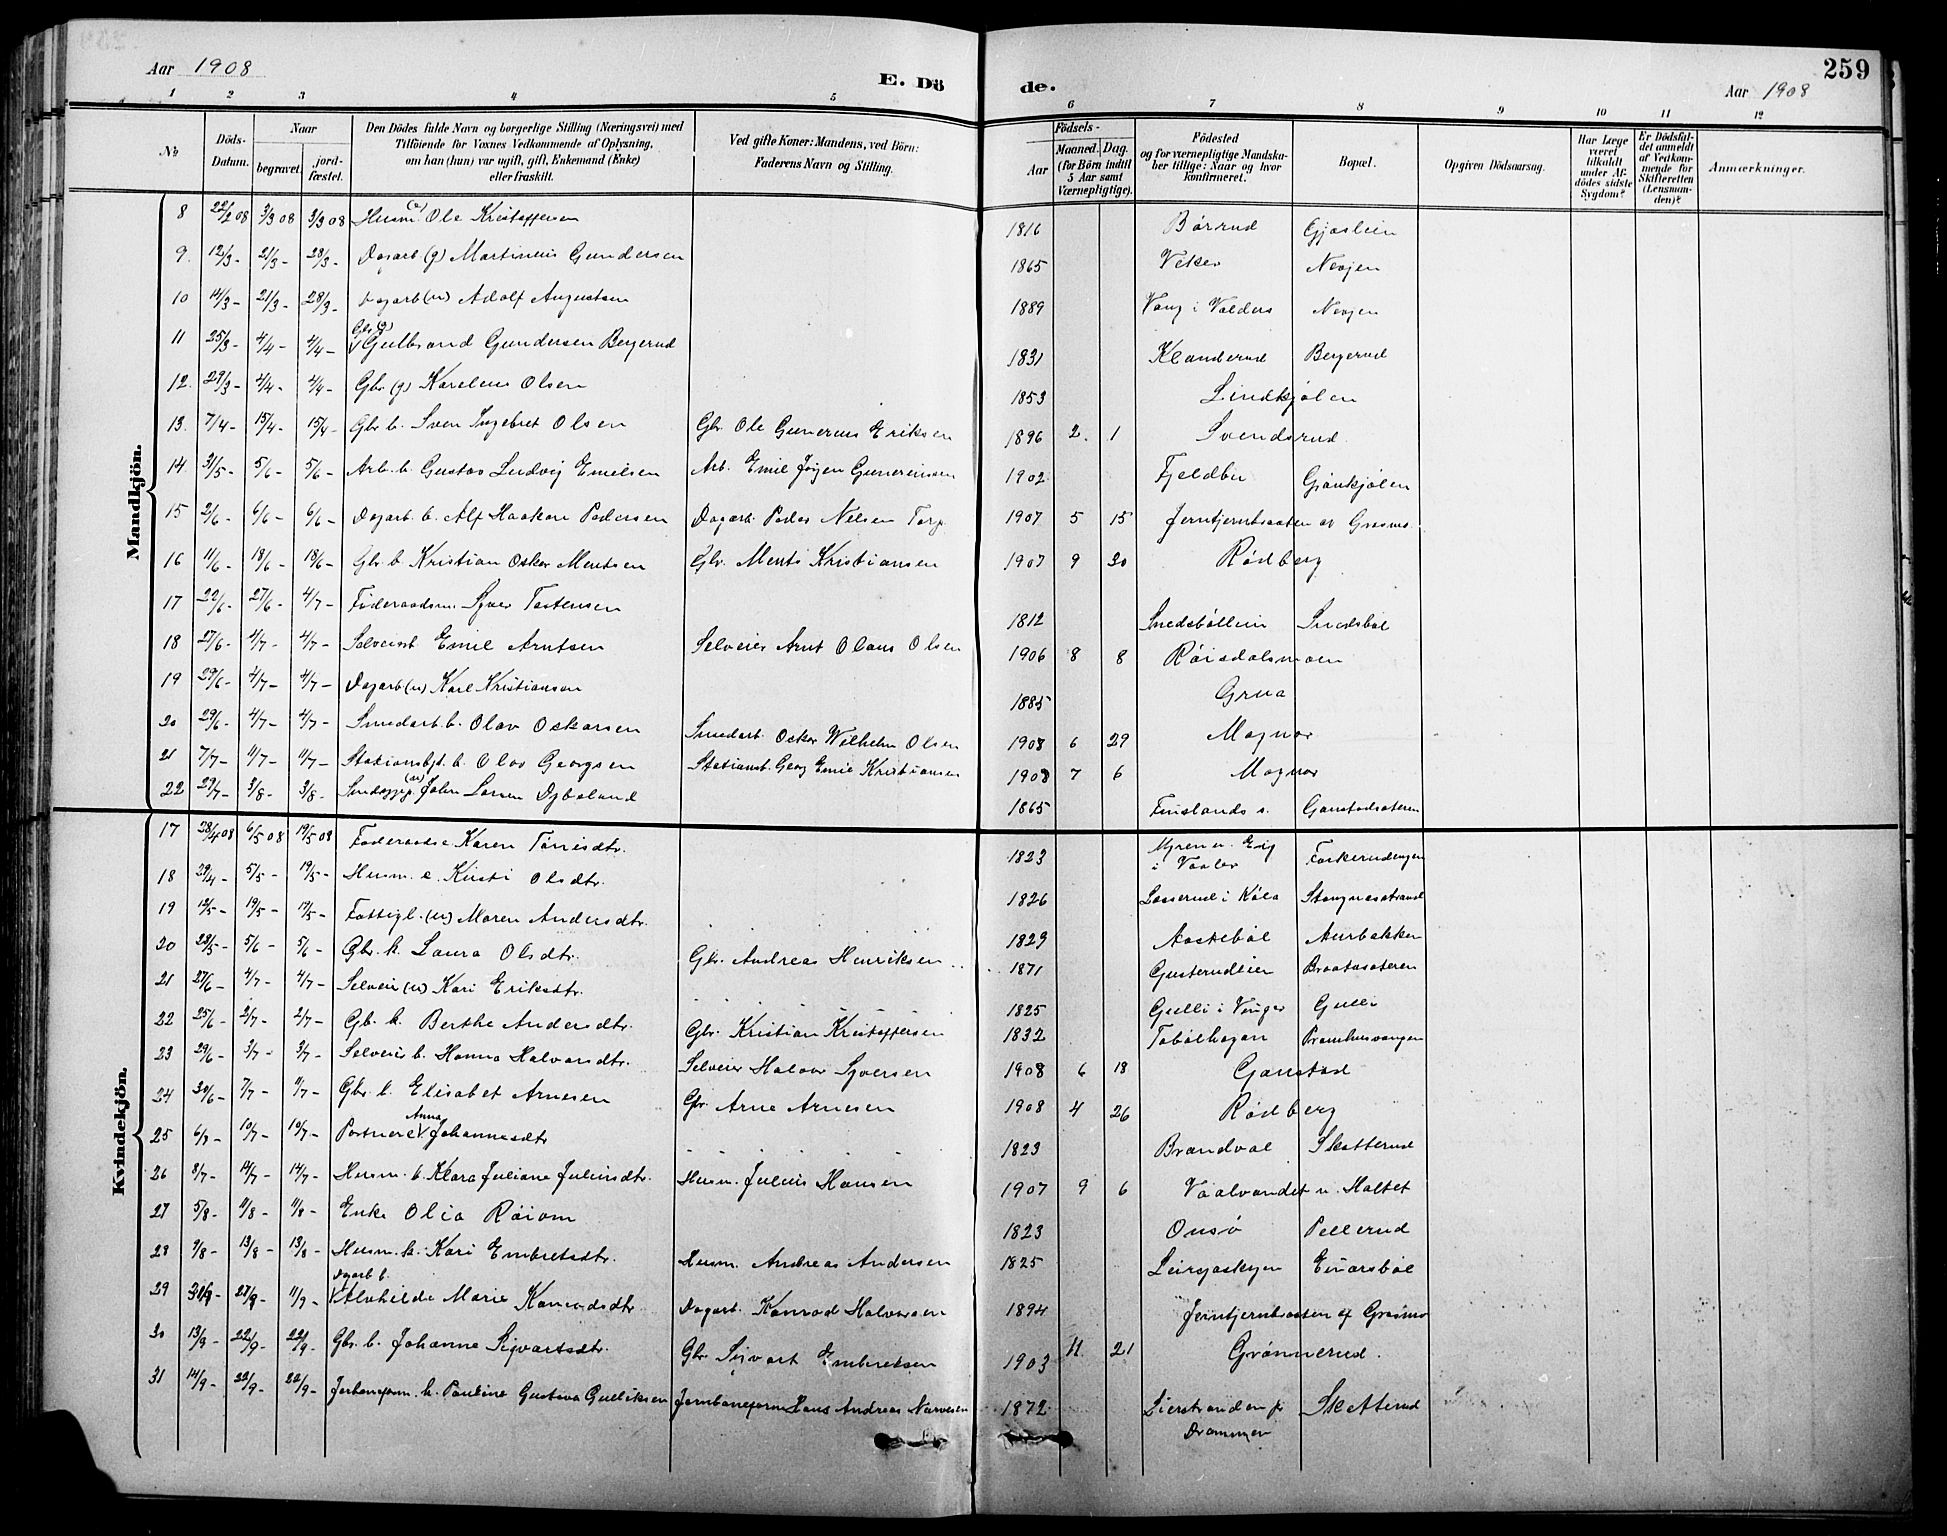 Aar 1908
E. Dö de.
259
Aar 1908
1 2 3 4 5 6 7 8 9 10 11 12
No
Döds-Datum.
Naar
begravet.
jord-fæstet.
Den Dödes fulde Navn og borgerlige Stilling (Næringsvei) med
Tilföiende for Voxnes Vedkommende af Oplysning,
om han (hun) var ugift, gift, Enkemand (Enke)
eller fraskilt.
Ved gifte Koner: Mandens, ved Börn:
Faderens Navn og Stilling.
Födsels-
Aar
Maaned. Dag.
(for Börn indtil
5 Aar samt
Værnepligtige).
Födested
og for værnepligtige Mandska-
ber tillige: Naar og hvor
konfirmeret.
Bopæl.
Opgiven Dödsaarsag.
Har Læge
været
tilkaldt
under Af-
dödes sidste
Sygdom?
Er Dödsfal-
det anmeldt
af Vedkom-
mende for
Skifteretten
(Lensman-
den)?
Anmærkninger.
Mandkjön.
8 22/2 08 3/3 08 3/3 08 Husm (e) Ole Kristoffersen 1816 Børrud Gjøsleien
9. 12/3 - 21/3 - 28/3 - Dagarb (g) Martinius Gundersen 1865 Veker Nevjen
10 14/3 - 21/3 - 28/3 - Dagarb (u) Adolf Augustsen 1889 Vang i Valders Nevjen
11 25/3 - 4/4 - 4/4 - Gbr (g) Gulbrand Gundersen Bergerud 1831 Klanderud Bergerud
12. 29/3 - 4/4 - 4/4 - Gbr (g) Karelius Olsen 1853 Lindkjølen
13. 7/4 - 15/4 - 15/4 - Gbr b. Sven Ingebret Olsen Gbr. Ole Gunerius Eriksen 1896 2. 1 Svendsrud
14 31/5 - 5/6 - 5/6 - Arb. b. Gustav Ludvig Emilsen Arb. Emil Jørgen Gunereiussen 1902 Fjeldbu Grankjølen
15 2/6 - 6/6 - 6/6 - Dagarb. b. Alf Haakon Pedersen Dagarb. Peder Nelsen Torp 1907 5 15 Jerntjernbraaten av Grasmo
16 11/6 - 18/6 - 18/6 - Gbr. b Kristian Oskar Mentsen Gbr. Ments Kristiansen 1907 9 30 Rødberg
17 22/6 - 27/6 - 4/7 - Føderaadsm. Syver Tostensen 1812 Snedsbølleien Snedsbøl
18 27/6 - 4/7 - 4/7 - Selveierb Emil Arntsen Selveier Arnt Olaus Olsen 1906 8 8 Røisdalsmoen
19 29/6 - 4/7 - 4/7 - Dagarb (u) Karl Kristiansen 1885 Grua
20 29/6 - 4/7 - 4/7 - Smedarb. b. Olav Oskarsen Smedarb. Oskar Wilhelm Olsen 1908 6 29 Magnor
21 7/7 - 11/7 - 11/7 - Stationsbtj. b. Olav Georgsen Stationsb. Georg Emil Kristiansen 1908 7 6 Magnor
22 29/7 - 3/8 - 3/8 - (u) John Dybeland 1865 Finslands s. Ganstadsæteren
Kvindekjön.
17 28/4 08 6/5 08 19/5 08 Føderaads e Karen Tørrisdtr. 1823 Myren u. Eig i Vaaler Forkerudengen
18 29/4 - 5/5 - 19/5 - Husm. e. Kirsti Olsdtr. 1826 Lasserud i Køla Stangnesstrand
19 12/5 - 19/5 - 19/5 - Fattigl. (u) Maren Andersdtr. 1829 Aastebøl Aurbakken
20 28/5 - 5/6 - 5/6 - Gbr. k. Laura Olsdtr. Gbr. Andreas Henriksen 1871 Gusterudleien Braatesæteren
21 27/6 - 4/7 - 4/7 - Selveier (u) Kari Eriksdtr. 1825 Gulli i Vinger Gulli
22 25/6 - 2/7 - 2/7 - Gb. k. Berthe Andersdtr. Gbr. Kristian Kristoffersen 1832 Tobølhagan Bramhusvangen
23 29/6 - 3/7 - 3/7 - Selveier b. Hanna Halvorsdtr. Selveier Halvor Syversen 1908 6 18 Ganstad
24 30/6 - 7/7 - 11/7 - Gbr. b. Elisabet Arnesen Gbr. Arne Arnesen 1908 4 26 Rødberg
25 6/7 - 10/7 - 10/7 - Anna Johannesdtr 1823 Brandval Skotterud
26 8/7 - 14/7 - 14/7 - Husm. b. Klara Juliane Juliusdtr. Husm. Julius Hansen 1907 9 6 Vaalvandet u. Holtet
27 5/8 - 11/8 - 11/8 - Enke Olia Røiom 1823 Onsø Pellerud
28 9/8 - 13/8 - 13/8 - Husm. k. Kari Embretsdtr. Husm. Andreas Andersen 1825 Leirgaskogen Einarsbøl
29 31/8 - 27/9 - 11/9 - Dagarb b. Alvhilde Marie Konradsdtr Dagarb. Konrad Halvorsen 1894 Jerntjernbraaten af Grasmo
30 13/9 - 22/9 - 22/9 - Gbr. b. Johanne Sigvartsdtr. Gbr. Sigvart Embretsen 1903 11. 21 Grønnerud.
31 14/9 - 22/9 - 22/9 - Jerbaneform. k. Pauline Gustava Gulliksen Jernbaneform Hans Andreas Narvesen 1872 Lierstranden p. Drammen Skotterud